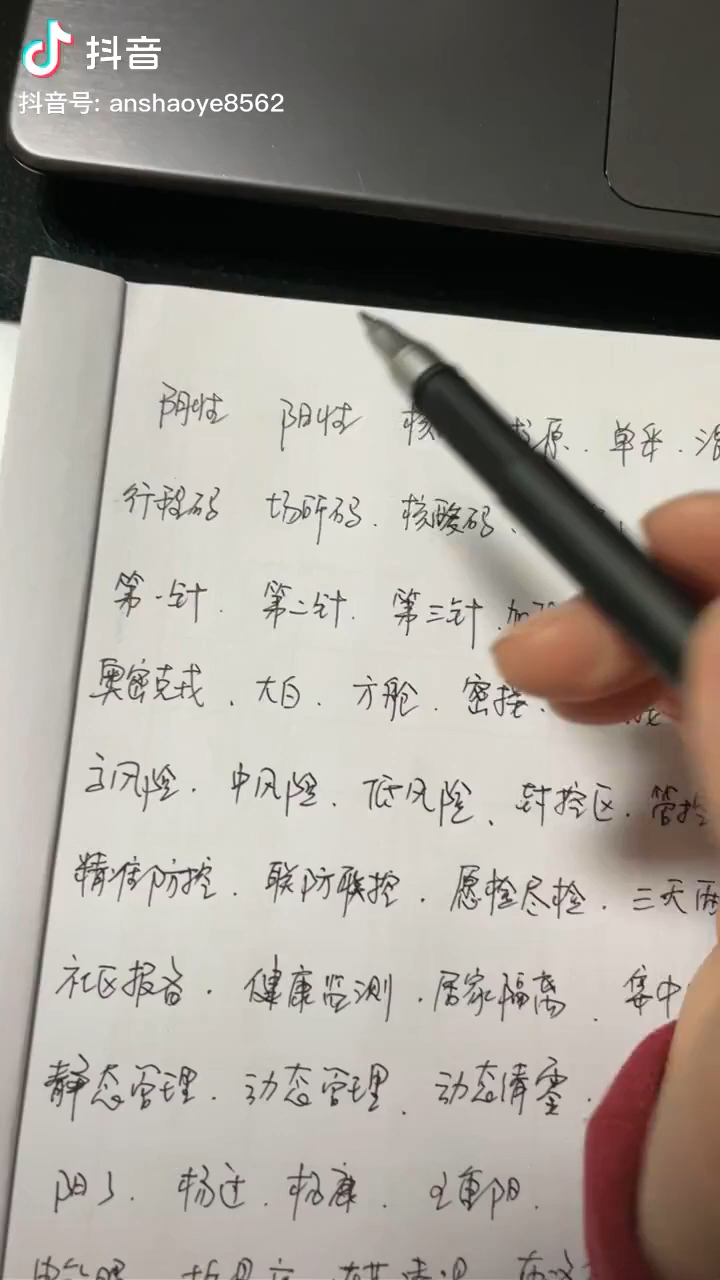 抖音
抖音号: anshaoye8562
阴性 阳性 核 原. 单采.
行程码 场所码. 核酸码.
第一针. 第二针. 第三针.
奥密克戎. 大白. 方舱. 密接.
高风险. 中风险. 低风险. 封控区. 管控
精准防控. 联防联控. 愿检尽检. 三天两
社区报备. 健康监测. 居家隔离. 集中
静态管理. 动态管理. 动态清零.
阳了. 杨过. 杨康. 王重阳.